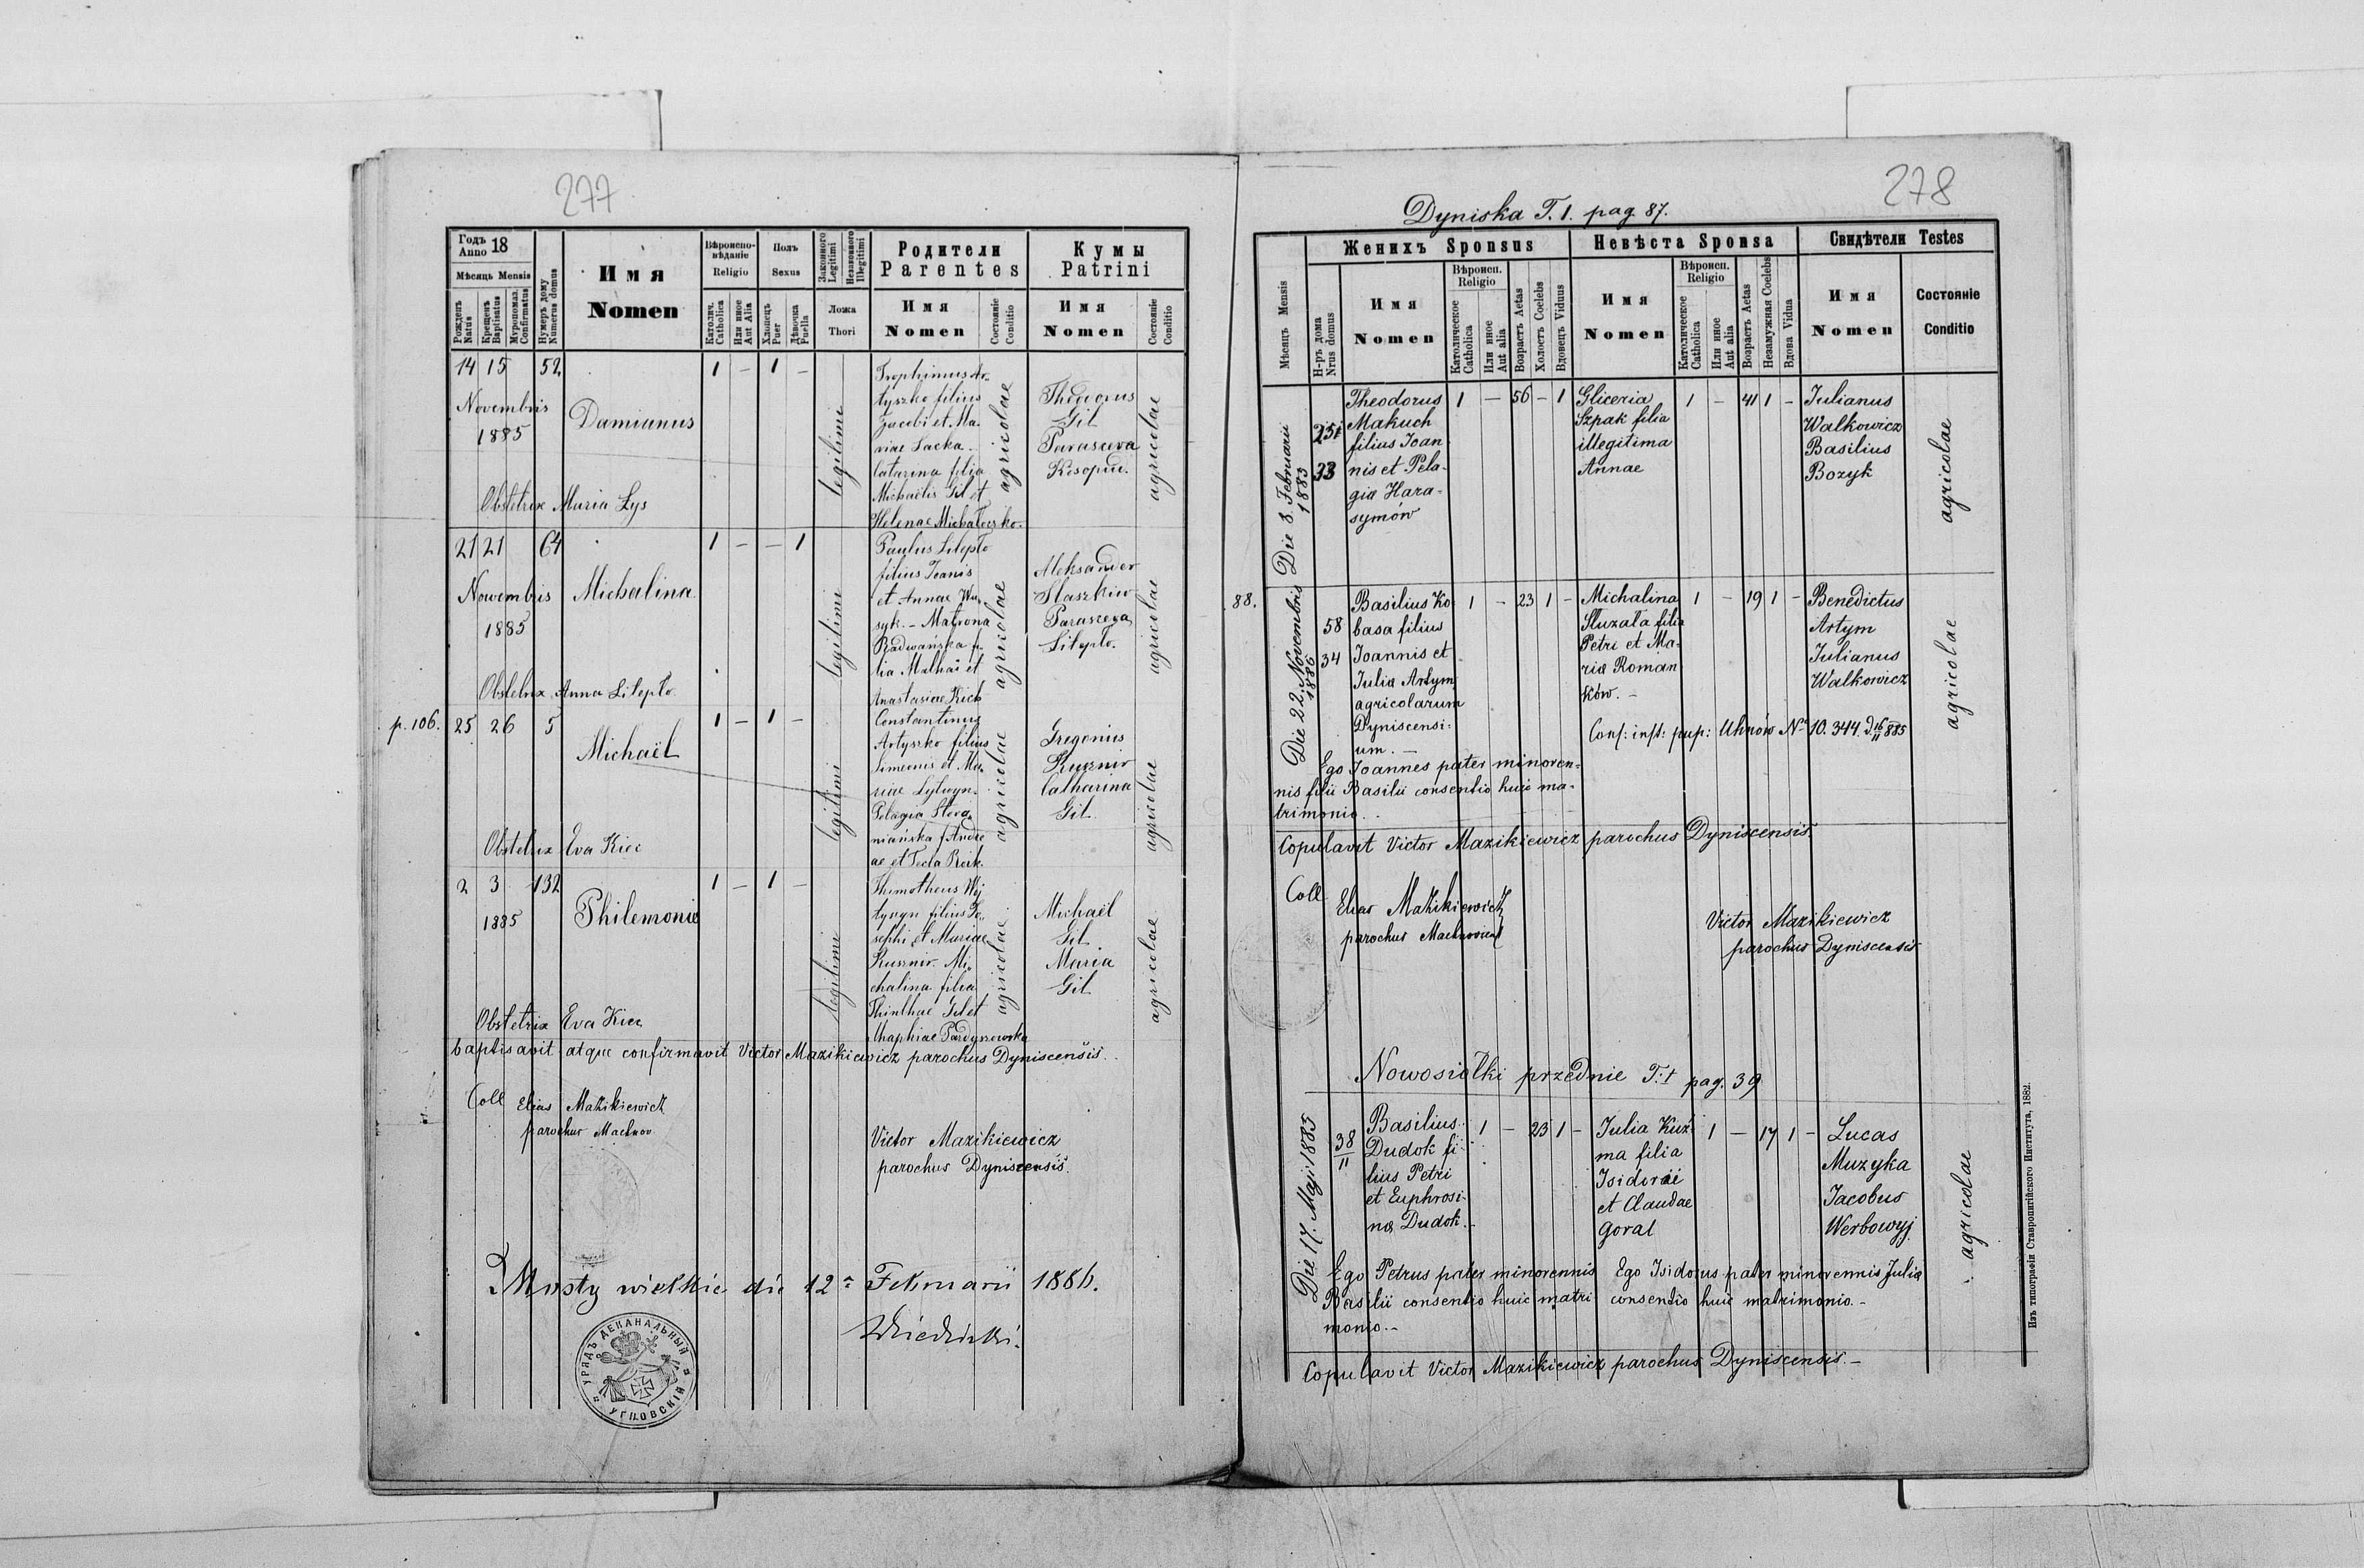 277
Годъ Anno 18
Мѣсяць Mensis
Рожденъ Natus
Крещенъ Baptisatus
Мυропомаз. Confirmatus
Нумеръ дому Numerus domus
Имя
Nomen
Вѣроиспо-вѣданіе
Religio
Католич. Catholica
Или иное Aut Alia
Полъ
Sexus
Хлопецъ Puer
Дѣвочка Puella
Законного Legitimi
Незаконного Illegitimi
Ложа
Thori
Родители
Parentes
Имя
Nomen
Состояніе Conditio
Кумы
Patrini
Имя
Nomen
Состояніе Conditio
14 15 52 1 – 1 –
Novembris
1885
Damianus
legitimi
Trophimus Ar-
tyszko filius
Jacobi et Ma-
riae Sacka.
Catarina filia
Michaelis Gil et
Helenae Michaloczko.
agricolae
Theodorus
Gil
Parasceva
agricolae
Obstetrix Maria Lys
21 21 64 1 – – 1
Novembris
1885
Michalina
legitimi
Paulus Litepto
filius Joanis
et Annae Wa-
syk. – Matrona
Radwańska fi-
lia Mathai et
Anastasiae Kich
agricolae
Aleksander
Staszkiw
Parasceva
Litepto.
agricolae
Obstetrix Anna Litepto
p. 106. 25 26 5 1 – 1 –
Michaël
legitimi
Constantinus
Artyszko filius
Simeonis et Ma-
riae Lytwyn.
Pelagia Stera-
niańska f. Andre
ae et Tecla Reik.
agricolae
Gregorius
Kusznir
Catharina
Gil
agricolae
Obstetrix Eva Kiec
2 3 132 1 – 1 –
1885
Philemonis
legitimi
Thimotheus Woj
tyszyn filius Jo-
sephi et Mariae
Kusznir. Mi-
chalina filia
agricolae
Michaël
Gil
Maria
Gil
agricolae
Obstetrix Eva Kiec
baptisavit atque confirmavit Victor Mazikiewicz parochus Dyniscensis.
Coll Elias Mazikiewicz
parochus Machnov
Victor Mazikiewicz
parochus Dyniscensis.
Mosty wielkie die 12a Februarii 1886.
УРЯДЪ ДЕКАНАЛЬНЫЙ УГНОВСКІЙ
278
Dyniska T. 1. pag. 87.
Мѣсяць Mensis
Женихъ Sponsus
Н-ръ дома Nrus domus
Имя
Nomen
Вѣроисп. Religio
Католическое Catholica
Или иное Aut alia
Возрастъ Aetas
Холостъ Coelebs
Вдовецъ Viduus
Невѣста Sponsa
Имя
Nomen
Вѣроисп. Religio
Католическое Catholica
Или иное Aut alia
Возрастъ Aetas
Незамужная Coelebs
Вдова Vidua
Свидѣтели Testes
Имя
Nomen
Состояніе
Conditio
Die 8. Februarii 1883
33
Theodorus
Makuch
filius Joan
nis et Pela-
gia Hara-
symów
1 – 56 – 1
Gliceria
Szpak filia
illegitima
Annae
1 – 41 1 –
Julianus
Walkowicz
Basilius
Bozyk
agricolae
88.
Die 22. Novembris 1885
58
34
Basilius Ko
basa filius
Joannis et
Julia Artym
agricolarum
Dyniscensi-
um. –
1 – 23 1 –
Michalina
Stuzala filia
Petri et Ma-
ria Roman
ków. –
1 – 19 1 –
Benedictus
Artym
Julianus
Walkowicz
agricolae
Cons: inst: pup: Uhnów No 10.344. d 16/11 885
Ego Joannes pater minoren-
nis filii Basilii consentio huic ma-
trimonio.
Copulavit Victor Mazikiewicz parochus Dyniscensis.
Coll
Elias Mazikiewicz
parochus Machnoviens
Victor Mazikiewicz
parochus Dyniscensis
Nowosiołki przednie T. 1 pag. 39
Die 17. Maji 1885
38
11
Basilius
Dudok fi-
lius Petri
et Euphrosi-
na Dudok.
1 – 23 1 –
Julia Kuź
ma filia
Isidorii
et Claudae
Goral
1 – 17 1 –
Lucas
Muzyka
Jacobus
Werbowyj
agricolae
Ego Petrus pater minorennis
Basilii consentio huic matri
monio. –
Ego Isidorus pater minorennis Julia
consentio huic matrimonio. –
Copulavit Victor Mazikiewicz parochus Dyniscensis. –
Изъ типографіи Ставропигійского Института, 1882.